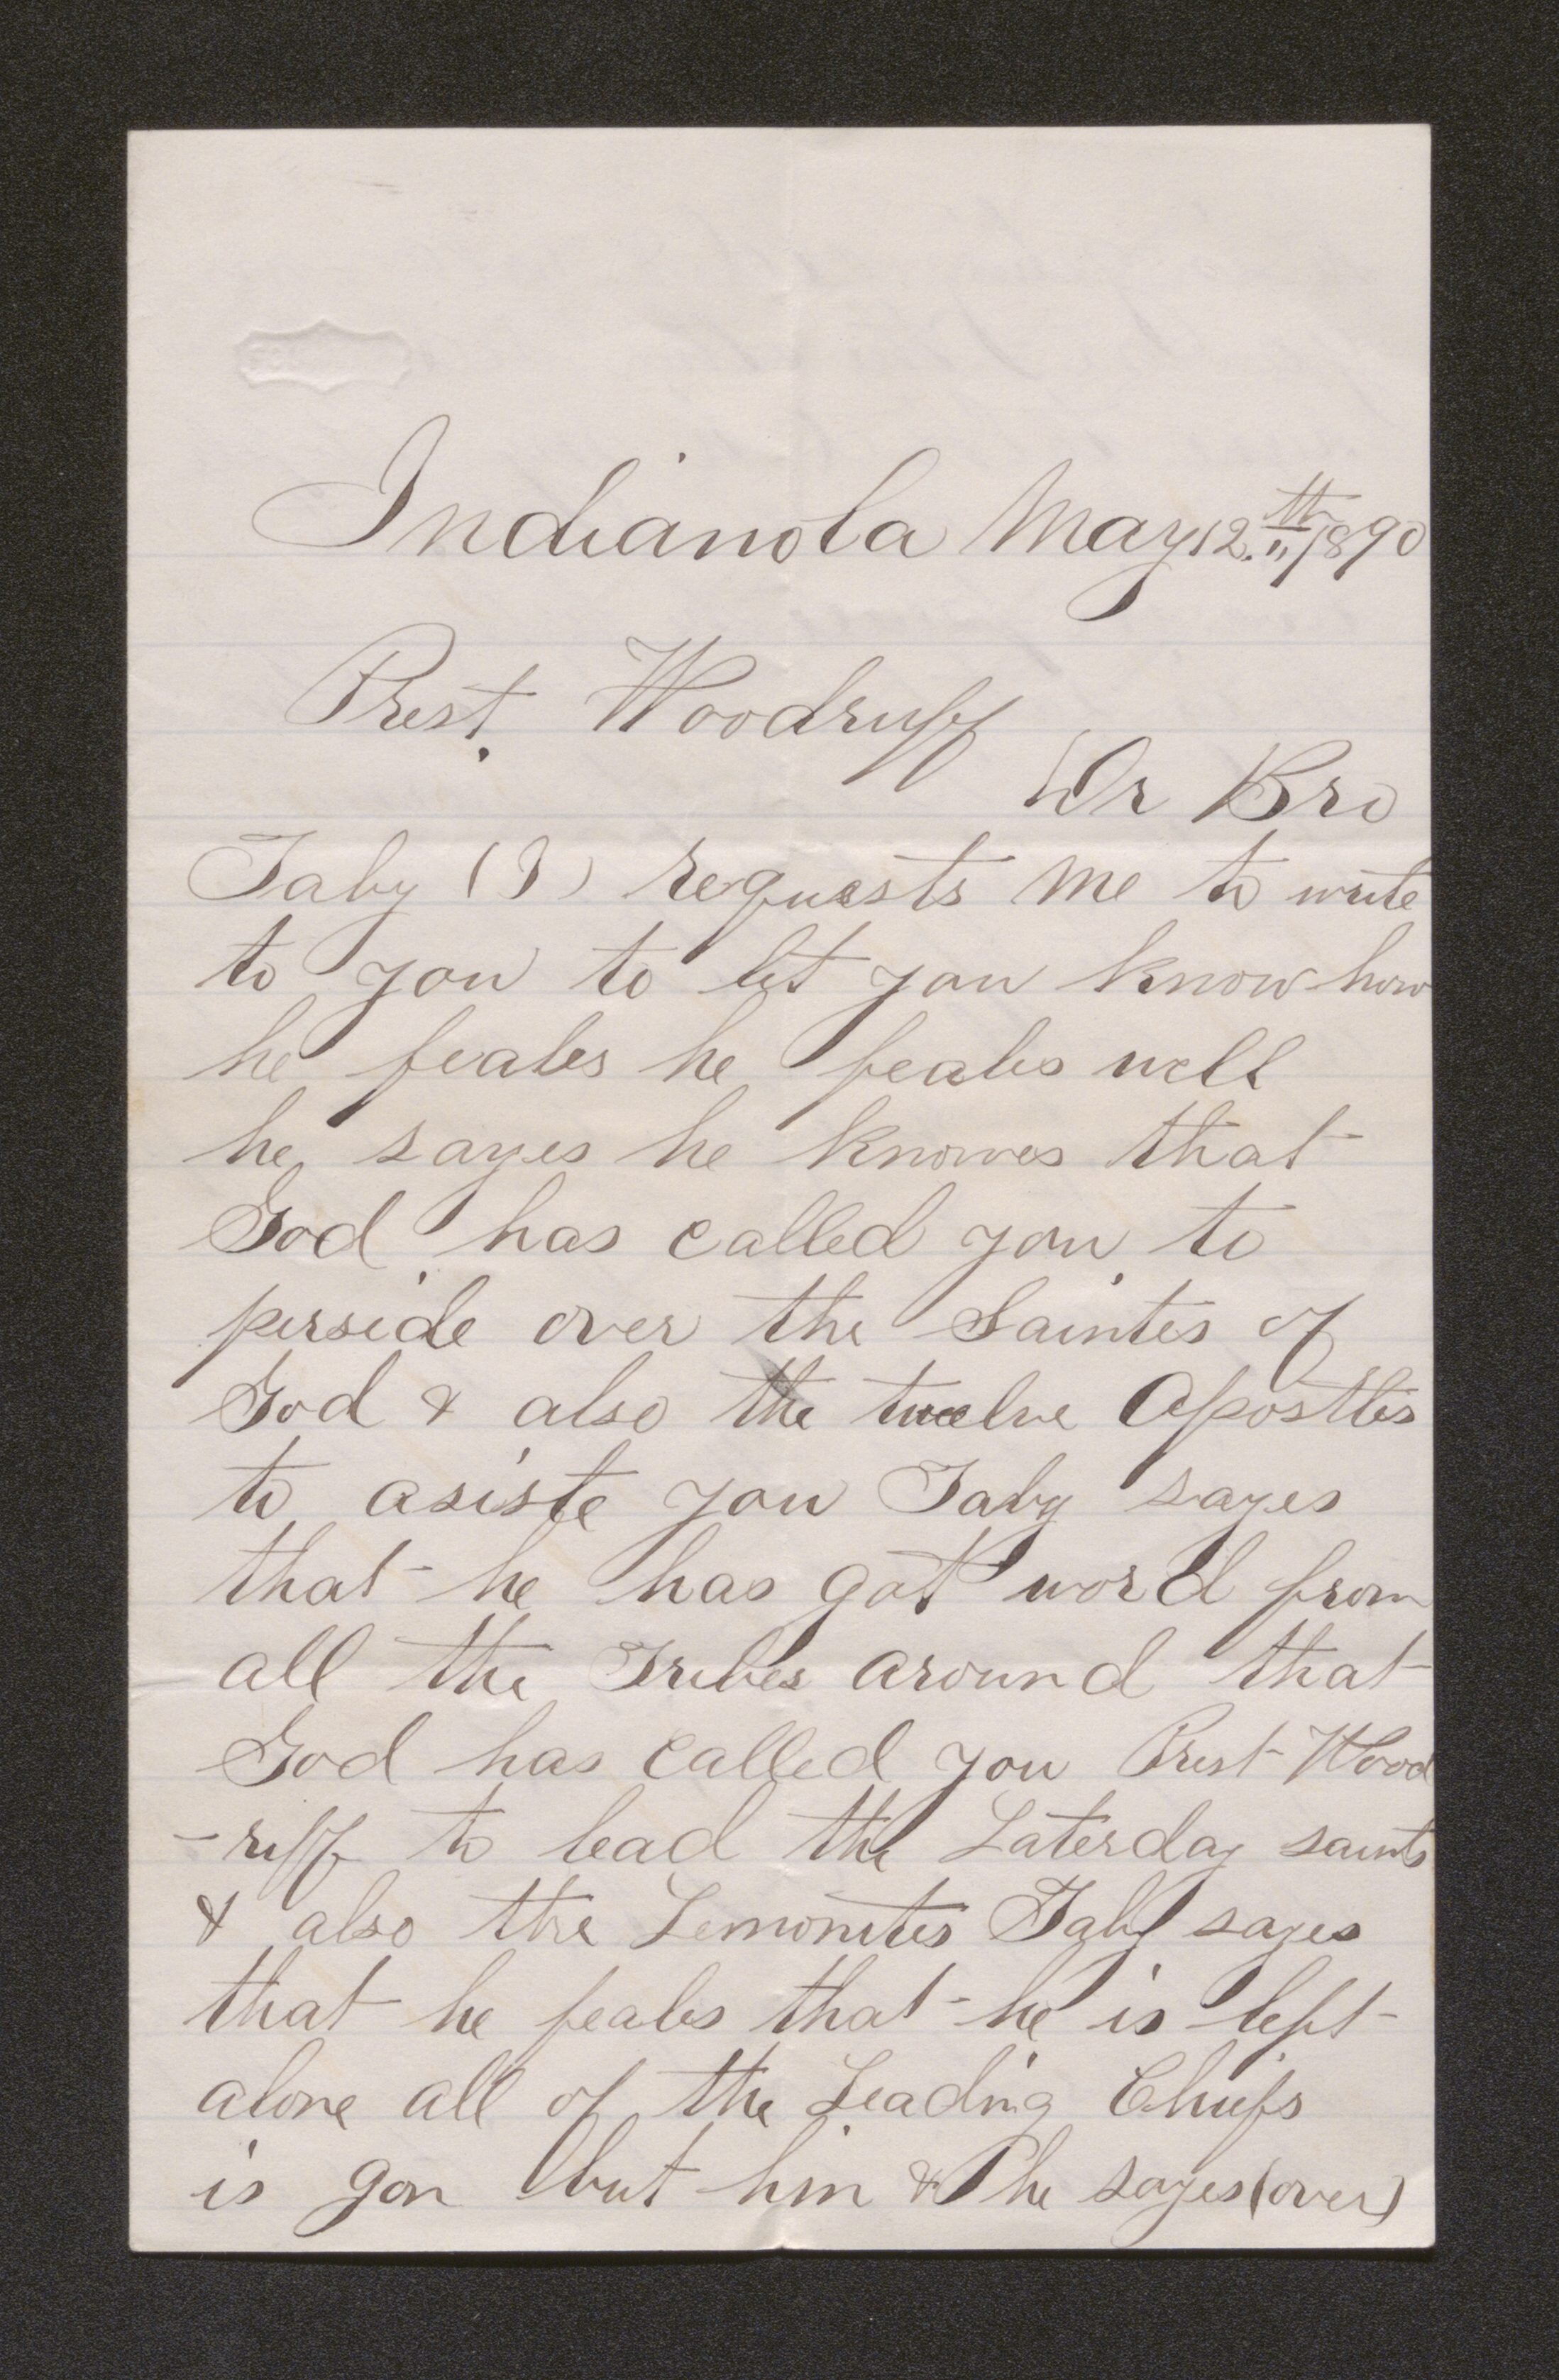 Indianola May 12.th 1890
Prest. Woodruff
Dr Bro
Taby (I) requests me to write
to you to let you know how
he feales he feales well
he sayes he knowes that
God has called you to
perside over the Saintes of
God & also the twelve Apostles
to asiste you Taby sayes
that he has got word from
all the Tribes around that
God has called you Prest Wood
-ruff to lead the Laterday saints
& also the Lemonites Taby sayes
that he feales that he is left
alone all of the Leading Chiefs
is gon but him & he sayes (over)